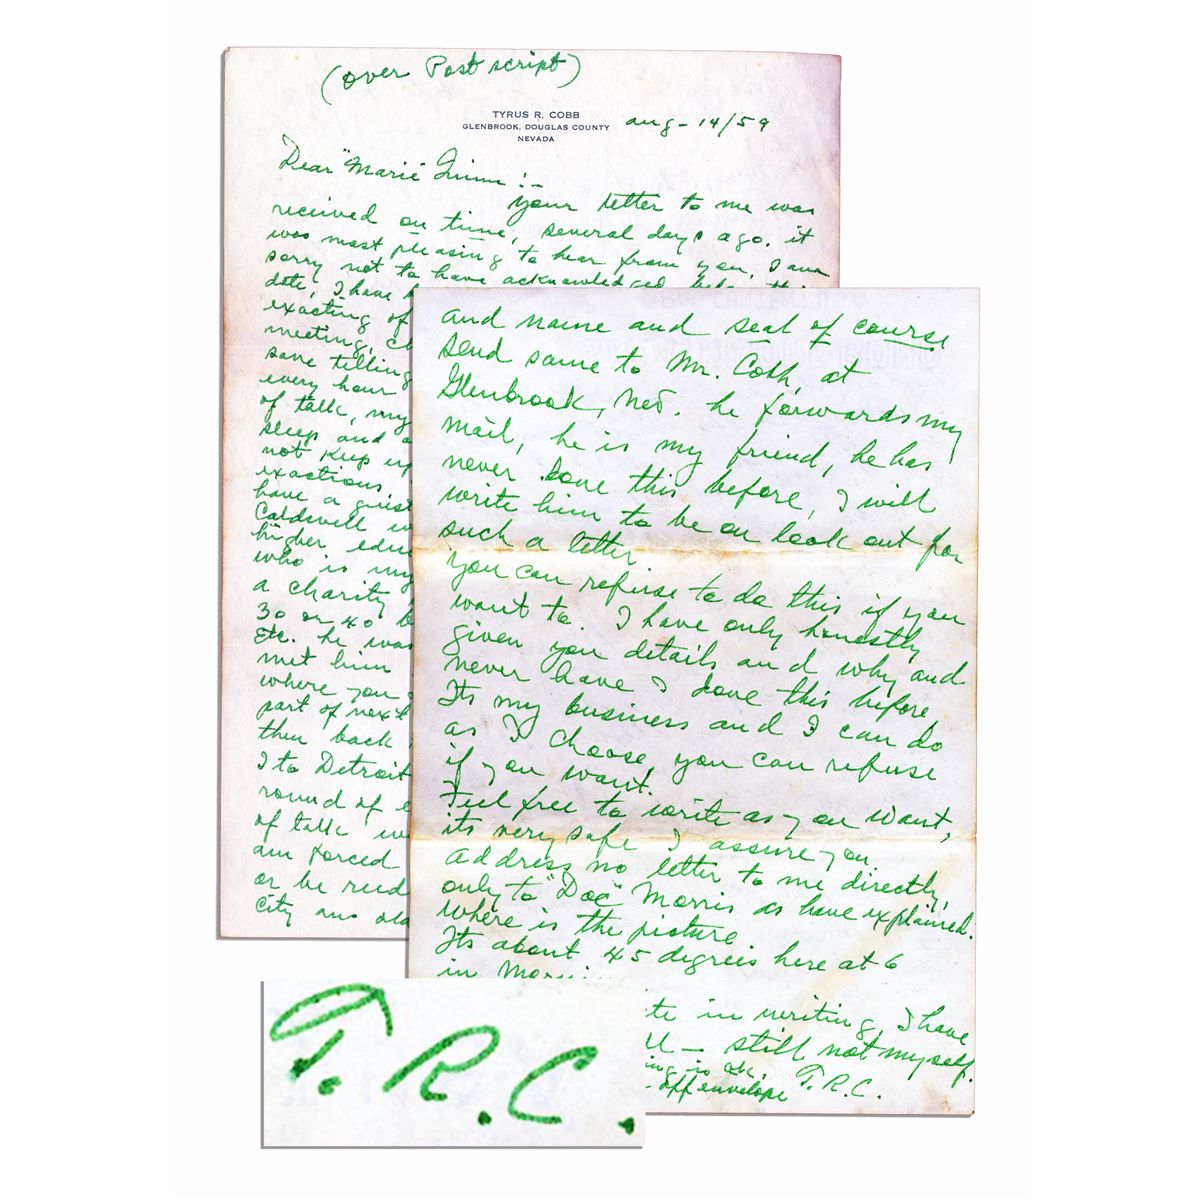 (over Post script)
TYRUS R. COBB
GLENBROOK, DOUGLAS COUNTY
NEVADA
Aug - 14/59
Dear "Marie" !-
your letter to me was
received on time, several days ago. it
was most pleasing to hear from you, I am
sorry not to have acknowledged before this
date, I have
exacting of
meeting,
save telling
every hour
of talk, my
sleep and
not keep up
exactions,
have a guest
Caldwell
higher
who is my
a charity
30 or 40
etc. he was
met him
where you
part of next
then back
I to Detroit
round of
of talk
am forced
or be
city
and name and seal of course
send same to Mr. Cobb, at
Glenbrook, Nev. he forwards my
mail, he is my friend, he has
never done this before, I will
write him to be on look out for
such a letter
you can refuse to do this if you
want to. I have only honestly
given you details and why and
never have I done this before
Its my business and I can do
as I choose, you can refuse
if you want.
Feel free to write as you want,
its very safe I assure you.
address no letter to me directly,
only to "Doc" Morris as have explained.
where is the picture
Its about 45 degrees here at 6
in
in writing, I have
— still not myself.
is ok. T. R. C.
off envelope
T. R. C.